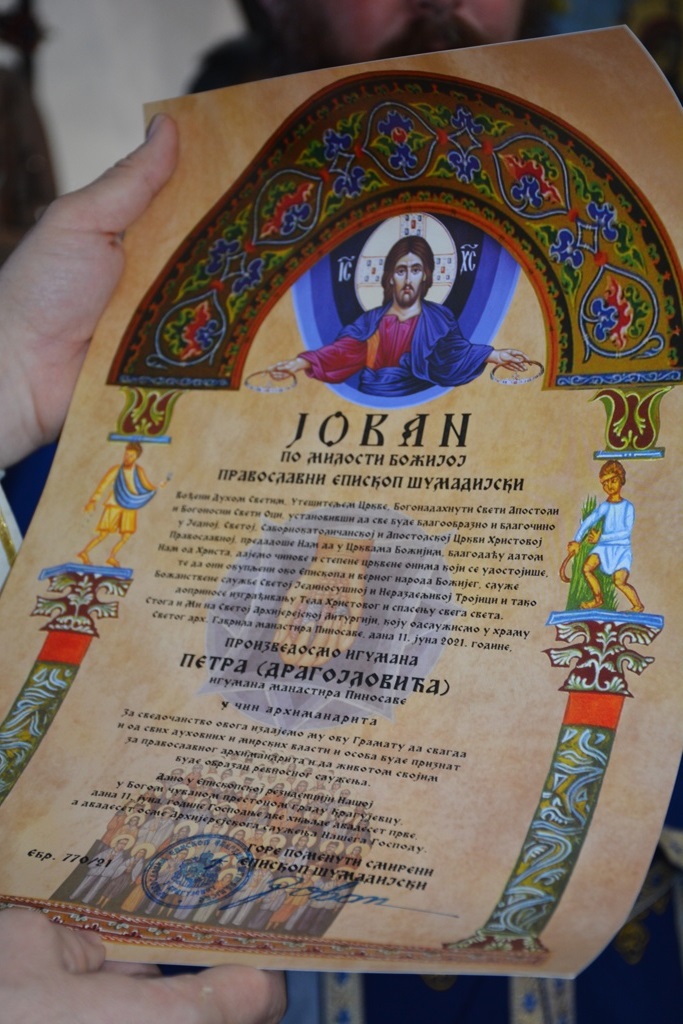 ІС ХС
ЈОВАН
ПО МИЛОСТИ БОЖИЈОЈ
ПРАВОСЛАВНИ ЕПИСКОП ШУМАДИЈСКИ
Вођени Духом Светим, Утешитељем Цркве, Богонадахнути Свети Апостоли
и Богоносни Свети Оци, установивши да све буде благообразно и благочино
у Једној, Светој, Саборнокатоличанској и Апостолској Цркви Христовој
Православној, предадоше Нам да у Црквама Божијим, благодаћу датом
Нам од Христа, дајемо чинове и степене црквене онима који се удостојише,
те да они окупљени око Епископа и верног народа Божијег, служе
Божанствене службе Светој Јединосушној и Нераздељивој Тројици и тако
доприносе изграђивању Тела Христовог и спасењу свега света.
Стога и Ми на Светој Архијерејској Литургији, коју одслужисмо у храму
Светог арх. Гаврила манастира Пиносаве, дана 11. јуна 2021. године,
ПРОИЗВЕДОСМО ИГУМАНА
ПЕТРА (ДРАГОЈЛОВИЋА)
ИГУМАНА МАНАСТИРА ПИНОСАВЕ
У ЧИН АРХИМАНДРИТА
За сведочанство овога издајемо му ову Грамату да свагда
и од свих духовних и мирских власти и особа буде признат
за православног архимандрита и да животом својим
буде образац ревносног служења.
Дано у Епископској резиденцији Нашој
у Богом чуваном престоном граду Крагујевцу,
дана 11. јуна, године Господње две хиљаде двадесет прве,
а двадесет осме архијерејскога служења Нашега Господу.
ЕБр. 770/21
ГОРЕ ПОМЕНУТИ СМИРЕНИ
ЕПИСКОП ШУМАДИЈСКИ